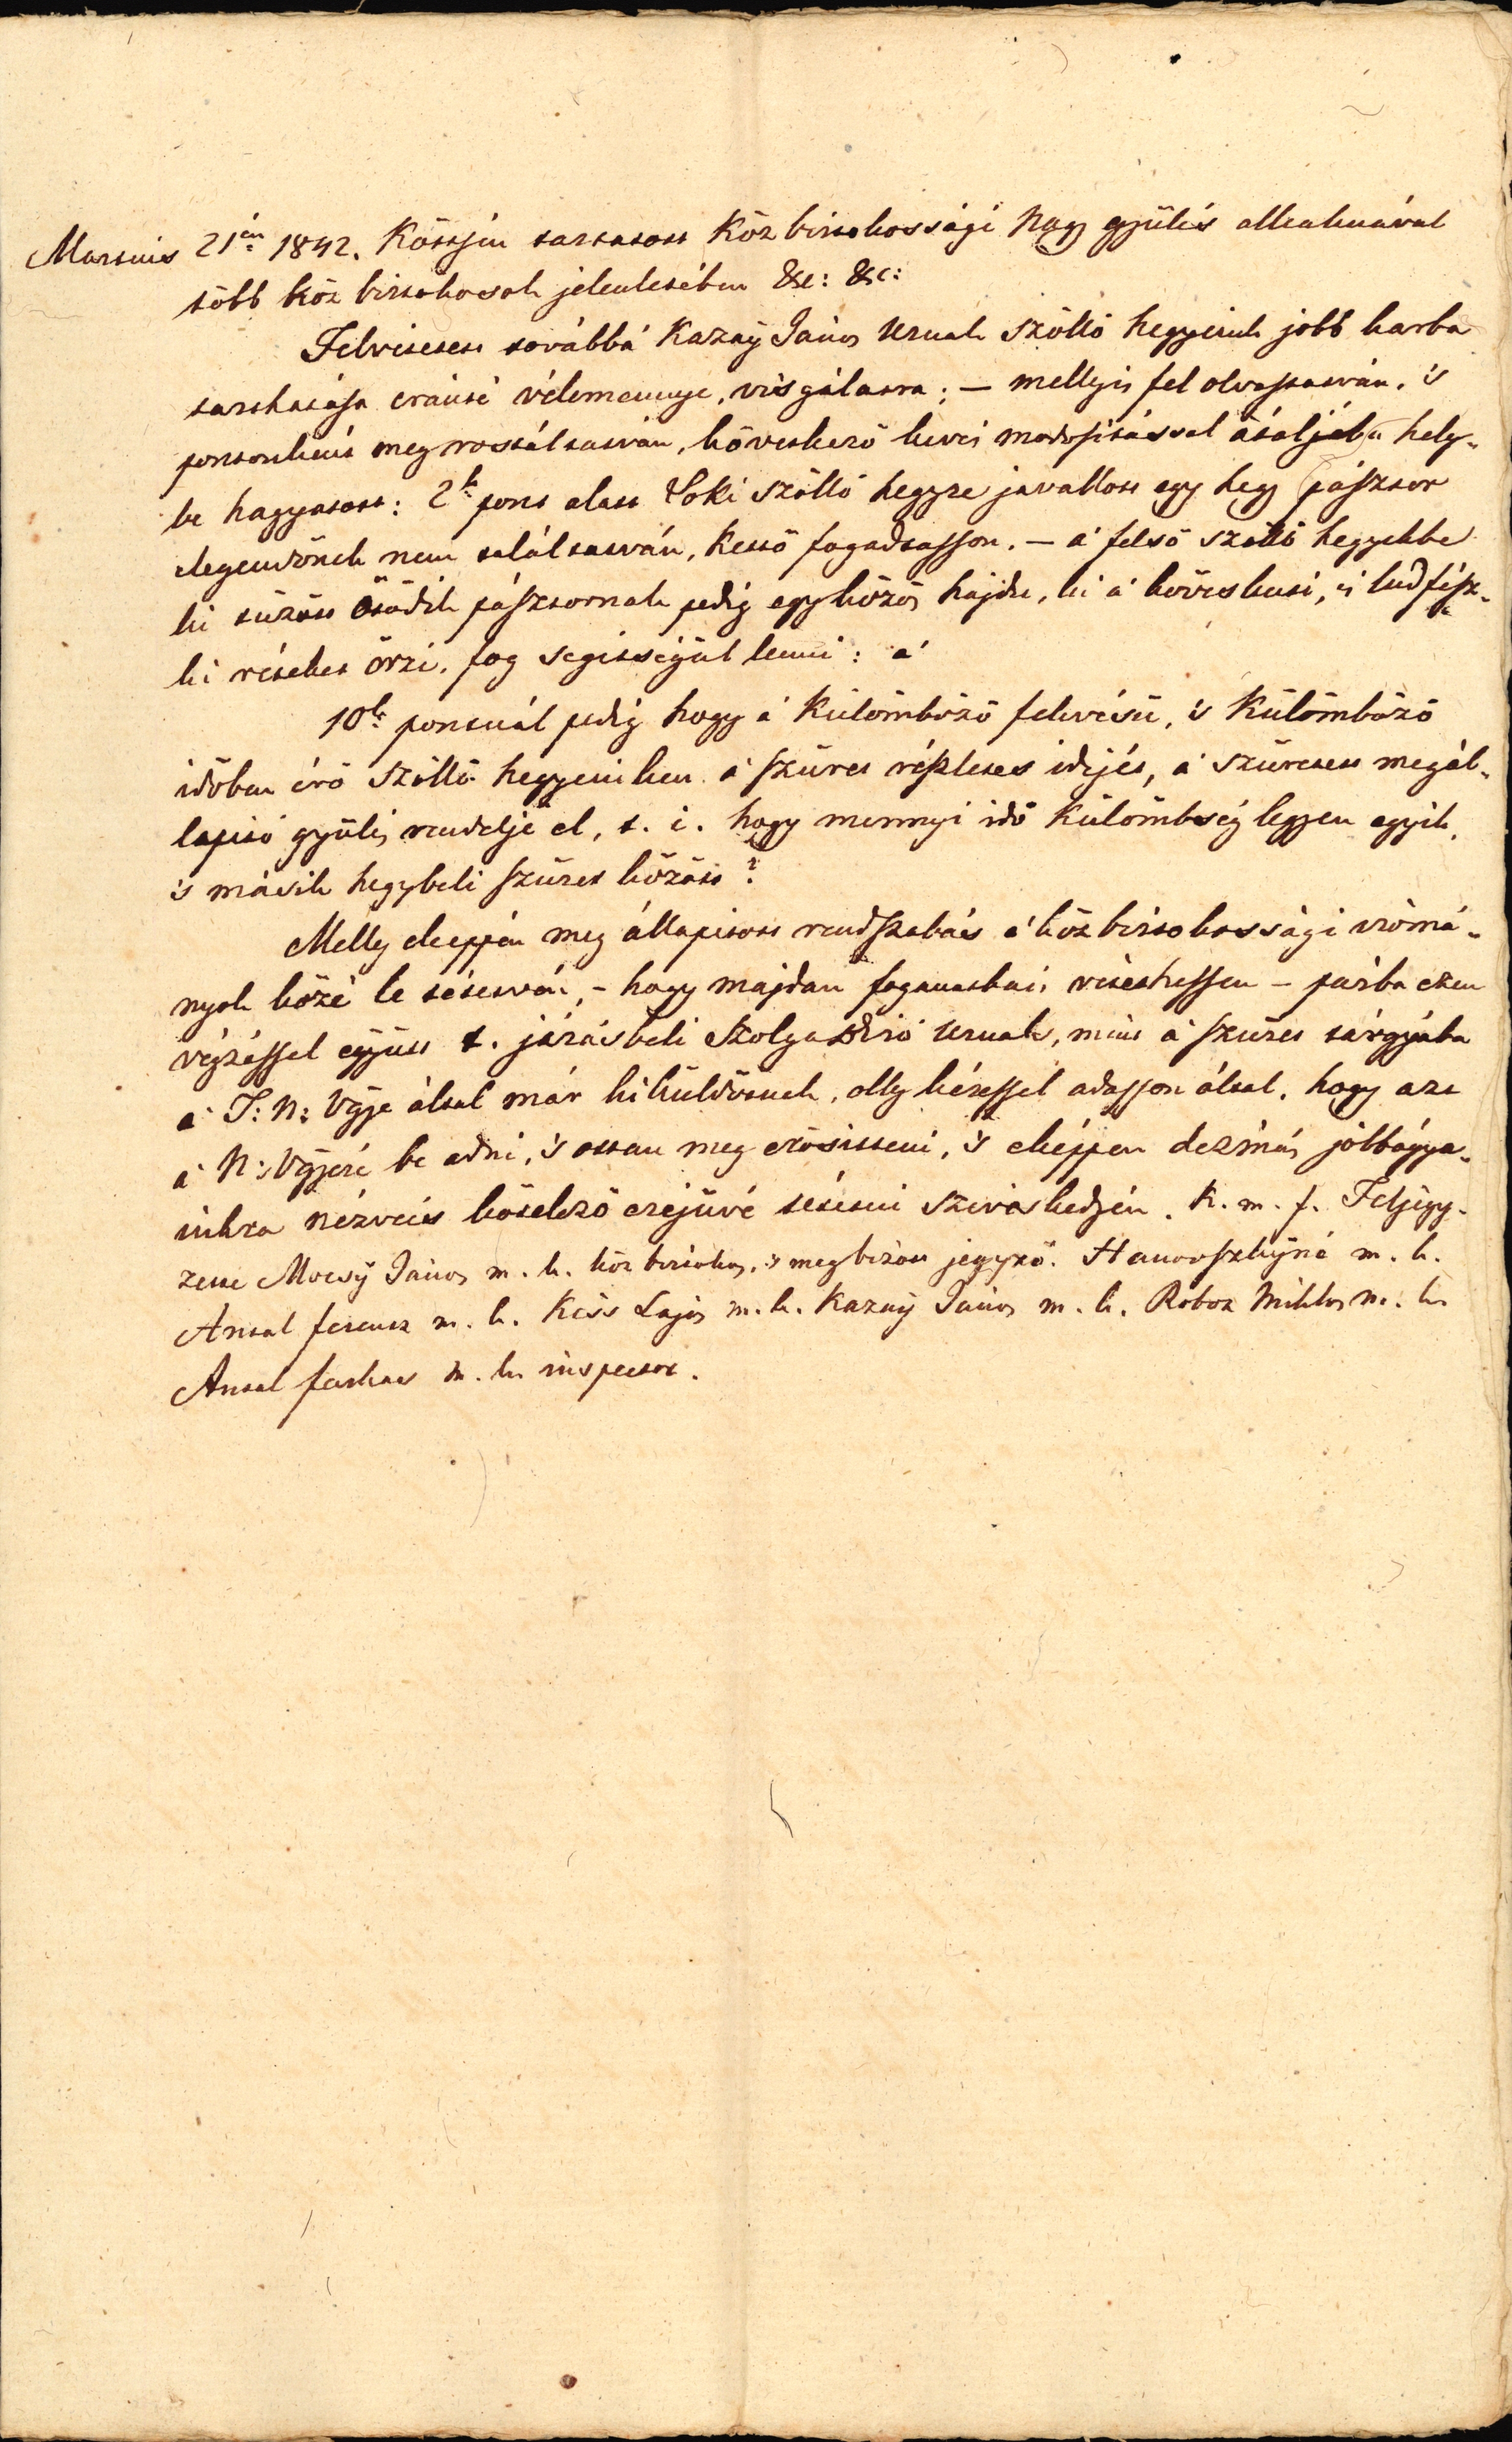 Martius 21<sup>én</sup> 1842. Köttsén tartatott Köz birtokossági Nagy gyülés alkalmával
több köz birtokosok jelenlétében &c: &c:
Felvétetett továbbá Kazay János Urnak szöllö hegyeink jobb karba
tarthatása eránti véleménnye, visgálatra; — mellyis fel olvastatván, 's
pontonként meg rostáltatván, következő kevés modositással átaljába hely-
be hagyatott: 2<sup>k</sup> pont alatt Soki szöllö hegyre javallott egy hegy pásztor
elegendönek nem találtatván, Kettö fogadtasson. — a' felsö szöllö hegyekbe
ki tüzött ötödik pásztornak pedig egy közös hajdu, ki a' köveskuti, 's ludfész-
ki réteket örzi, fog segittségül lenni: a'
10<sup>k</sup> pontnál pedig hogy a' Külömbözö fekvésü, 's Külömbözö
idöben érö szöllö hegyeinken a' szüret részletes idejét, a' szüretett megál-
lapitó gyülés rendelje el, t. i. hogy mennyi idö Külömbség legyen egyik,
's másik hegybeli szüret között?
Melly eképpen meg állapitott rendszabás a' köz birtokossági irómá-
nyok közé le tétetvén, – hogy majdan foganatbais vétethessen – párba ezen
végzéssel együtt t. járásbeli Szolgabiró Urnak, mint a' szüret tárgyába
a' T: N: Vgye által már ki küldöttnek, olly kéressel adasson által, hogy azt
a' N: Vgyere be adni, 's ottan meg erösitteni, 's eképpen dezmás jobbágya-
inkra nézveis kötelezö erejüvé tétetni sziveskedjén. K. m. f. Feljegy-
zette Mocsÿ János m. k. köz birtokos, 's megbizott jegyzö. Hanovszkÿné m. k.
Antal ferencz m. k. Kiss Lajos m. k. Kazaÿ János m. k. Roboz Miklos m. k.
Antal farkas m. k. inspector.